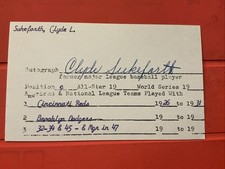 Sukeforth, Clyde L.
Autograph Clyde Sukeforth
former/major League baseball player
Position c All-Star 19 World Series 19
American & National League Teams Played With
1 Cincinnati Reds 19 26 to 19 31
2 Brooklyn Dodgers 19 to 19
3 32-34 & 45 - 6 Mgr in 47 19 to 19